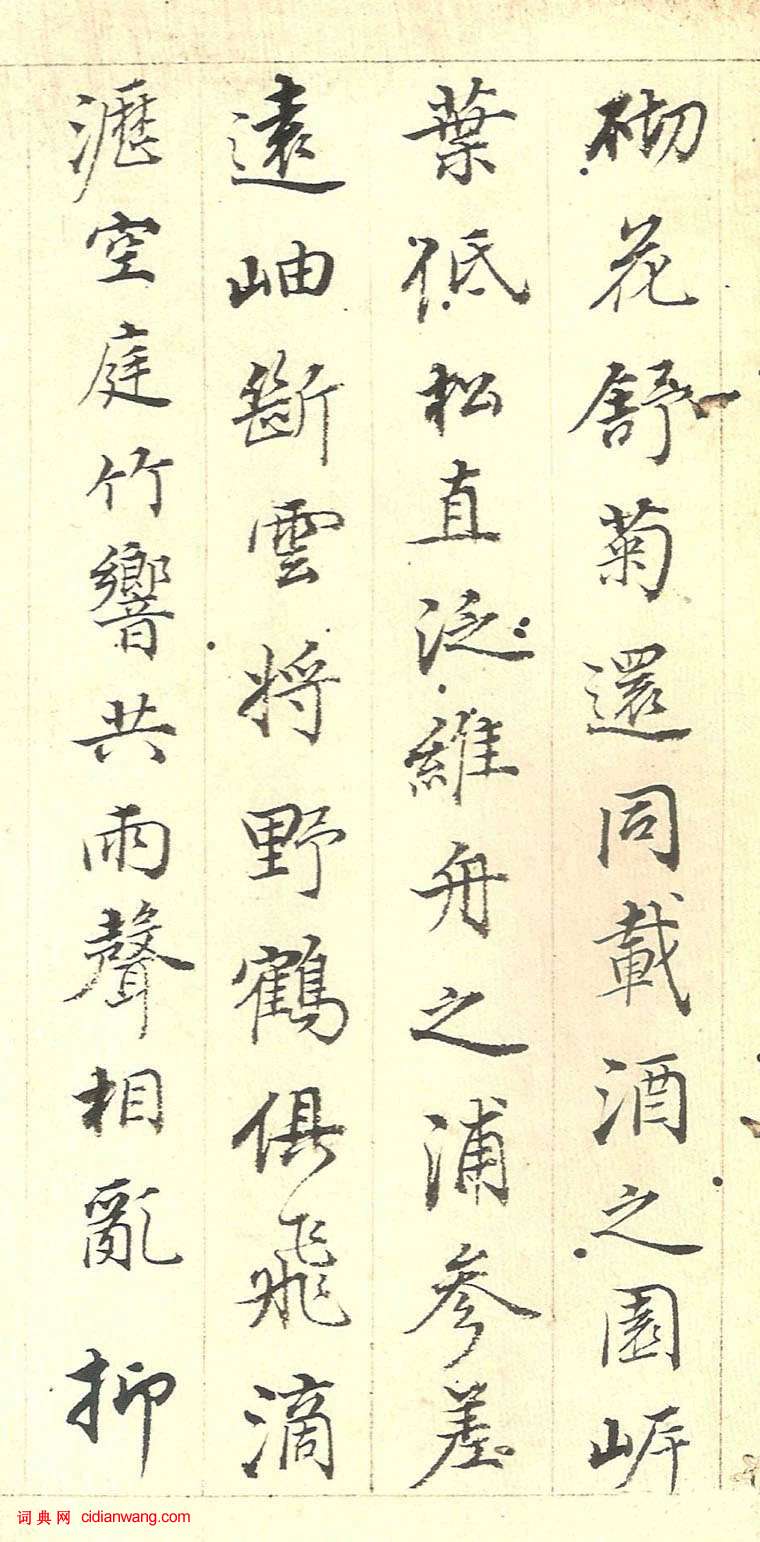 砌花舒菊還同載酒之園岸
葉低松直泛維舟之浦參差
遠岫斷雲將野鶴俱飛滴
瀝空庭竹響共雨聲相亂抑
词典网 cidianwang.com